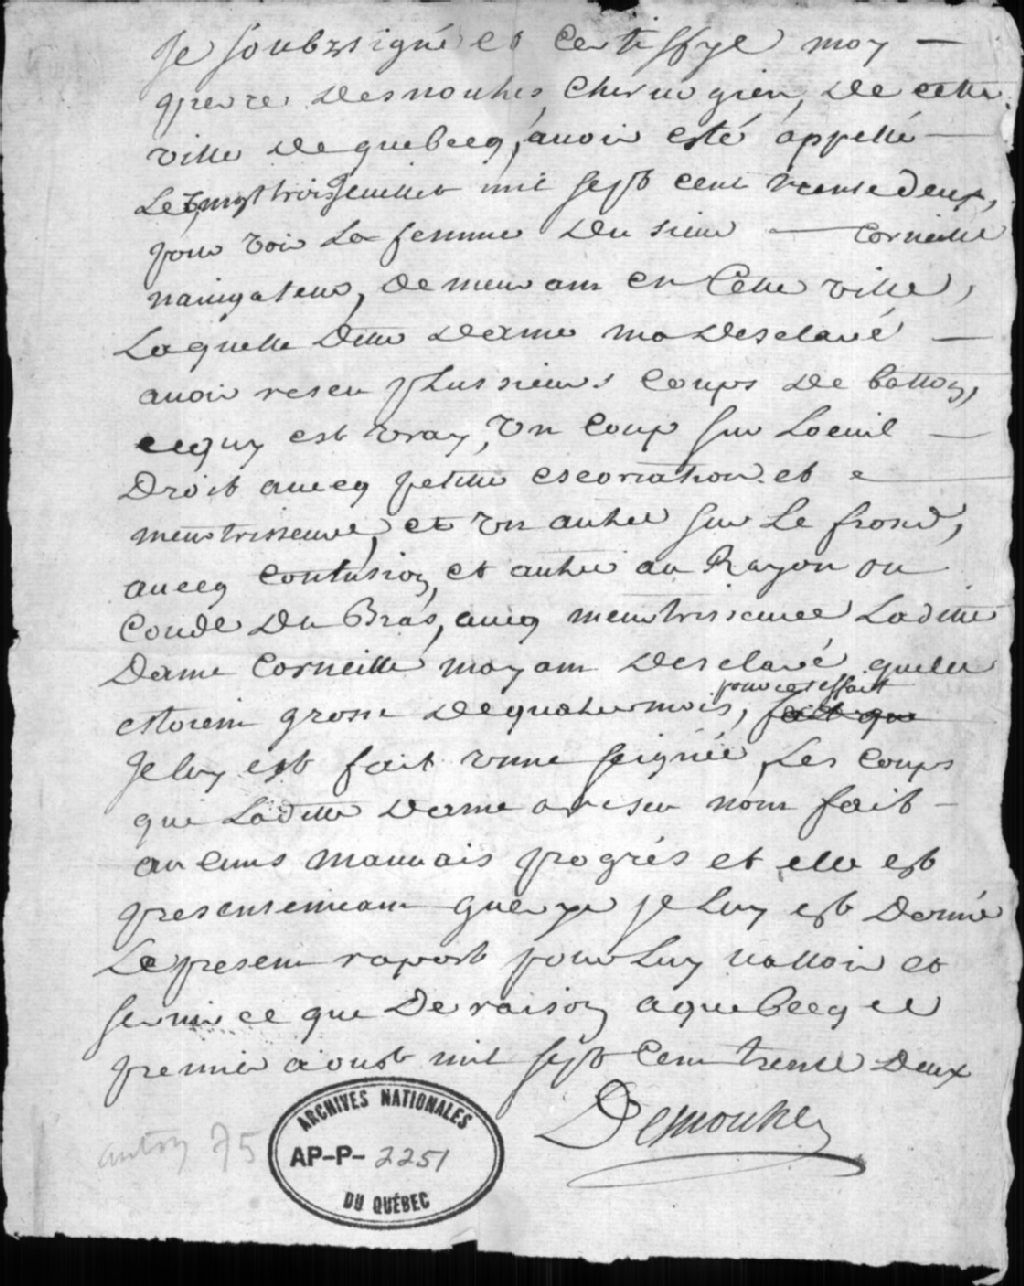 Je soubzsigné et certiffye moy —
pierre Desnouhes, Cherurgien, De cette
ville De quebecq, auoir esté appellé —
Le vingt trois Jeuillet mil sept cent trente deux,
pour voir La femme Du sieur — corneille
nauigateur, Demeurant en Cette ville,
Laquelle Ditte Dame ma Desclaré —
auoir reseu plussieurs coups De batton,
cequy est vray, Vn coup sur Loeuil —
Droit auecq petitte escoriation et
meurtrisseure, et vn autre sur Le frond,
auecq contusion, et autre au Rayon ou
Coude Du Bras, auecq meurtrisseure Laditte
Dame Corneille mayant Desclaré quelle
estoient grosse De quatre mois, pour cet effait
Je luy est fait vnne seignée, Les coups
que Laditte Dame a reseu nont fait —
aucuns mauuais progrés et elle est
presentement guerye je Luy est Donné
Le present raport pour Luy valloir et
seruir ce que De raison a quebecq ce
premier aoust mil sept Cent trente Deux
Desnouhes
ARCHIVES NATIONALES
AP-P-2251
DU QUÉBEC
75